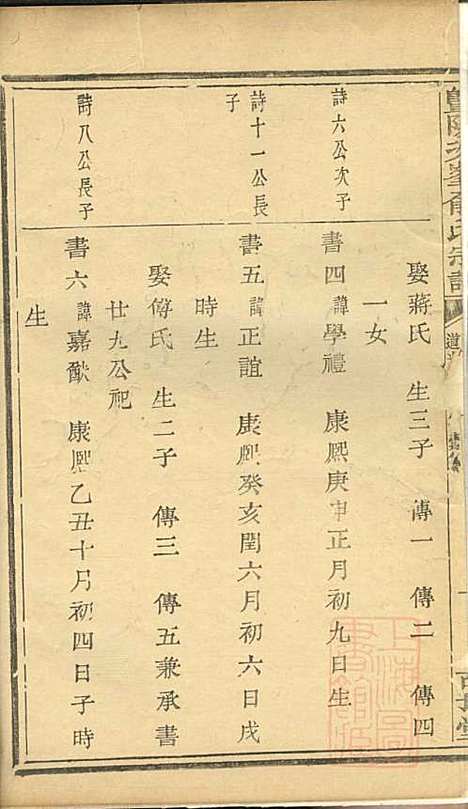 暨陽次峯俞氏宗譜
娶蔣氏 生三子 傳一 傳二 傳四
一女
詩六公次子
書四諱學禮 康熙庚申正月初九日生
詩十一公長子
書五諱正誼 康熙癸亥閏六月初六日戌
時生
娶傅氏 生二子 傳三 傳五兼承書
廿九公祀
詩八公長子
書六諱嘉猷 康熙乙丑十月初四日子時
生
上海圖書館藏